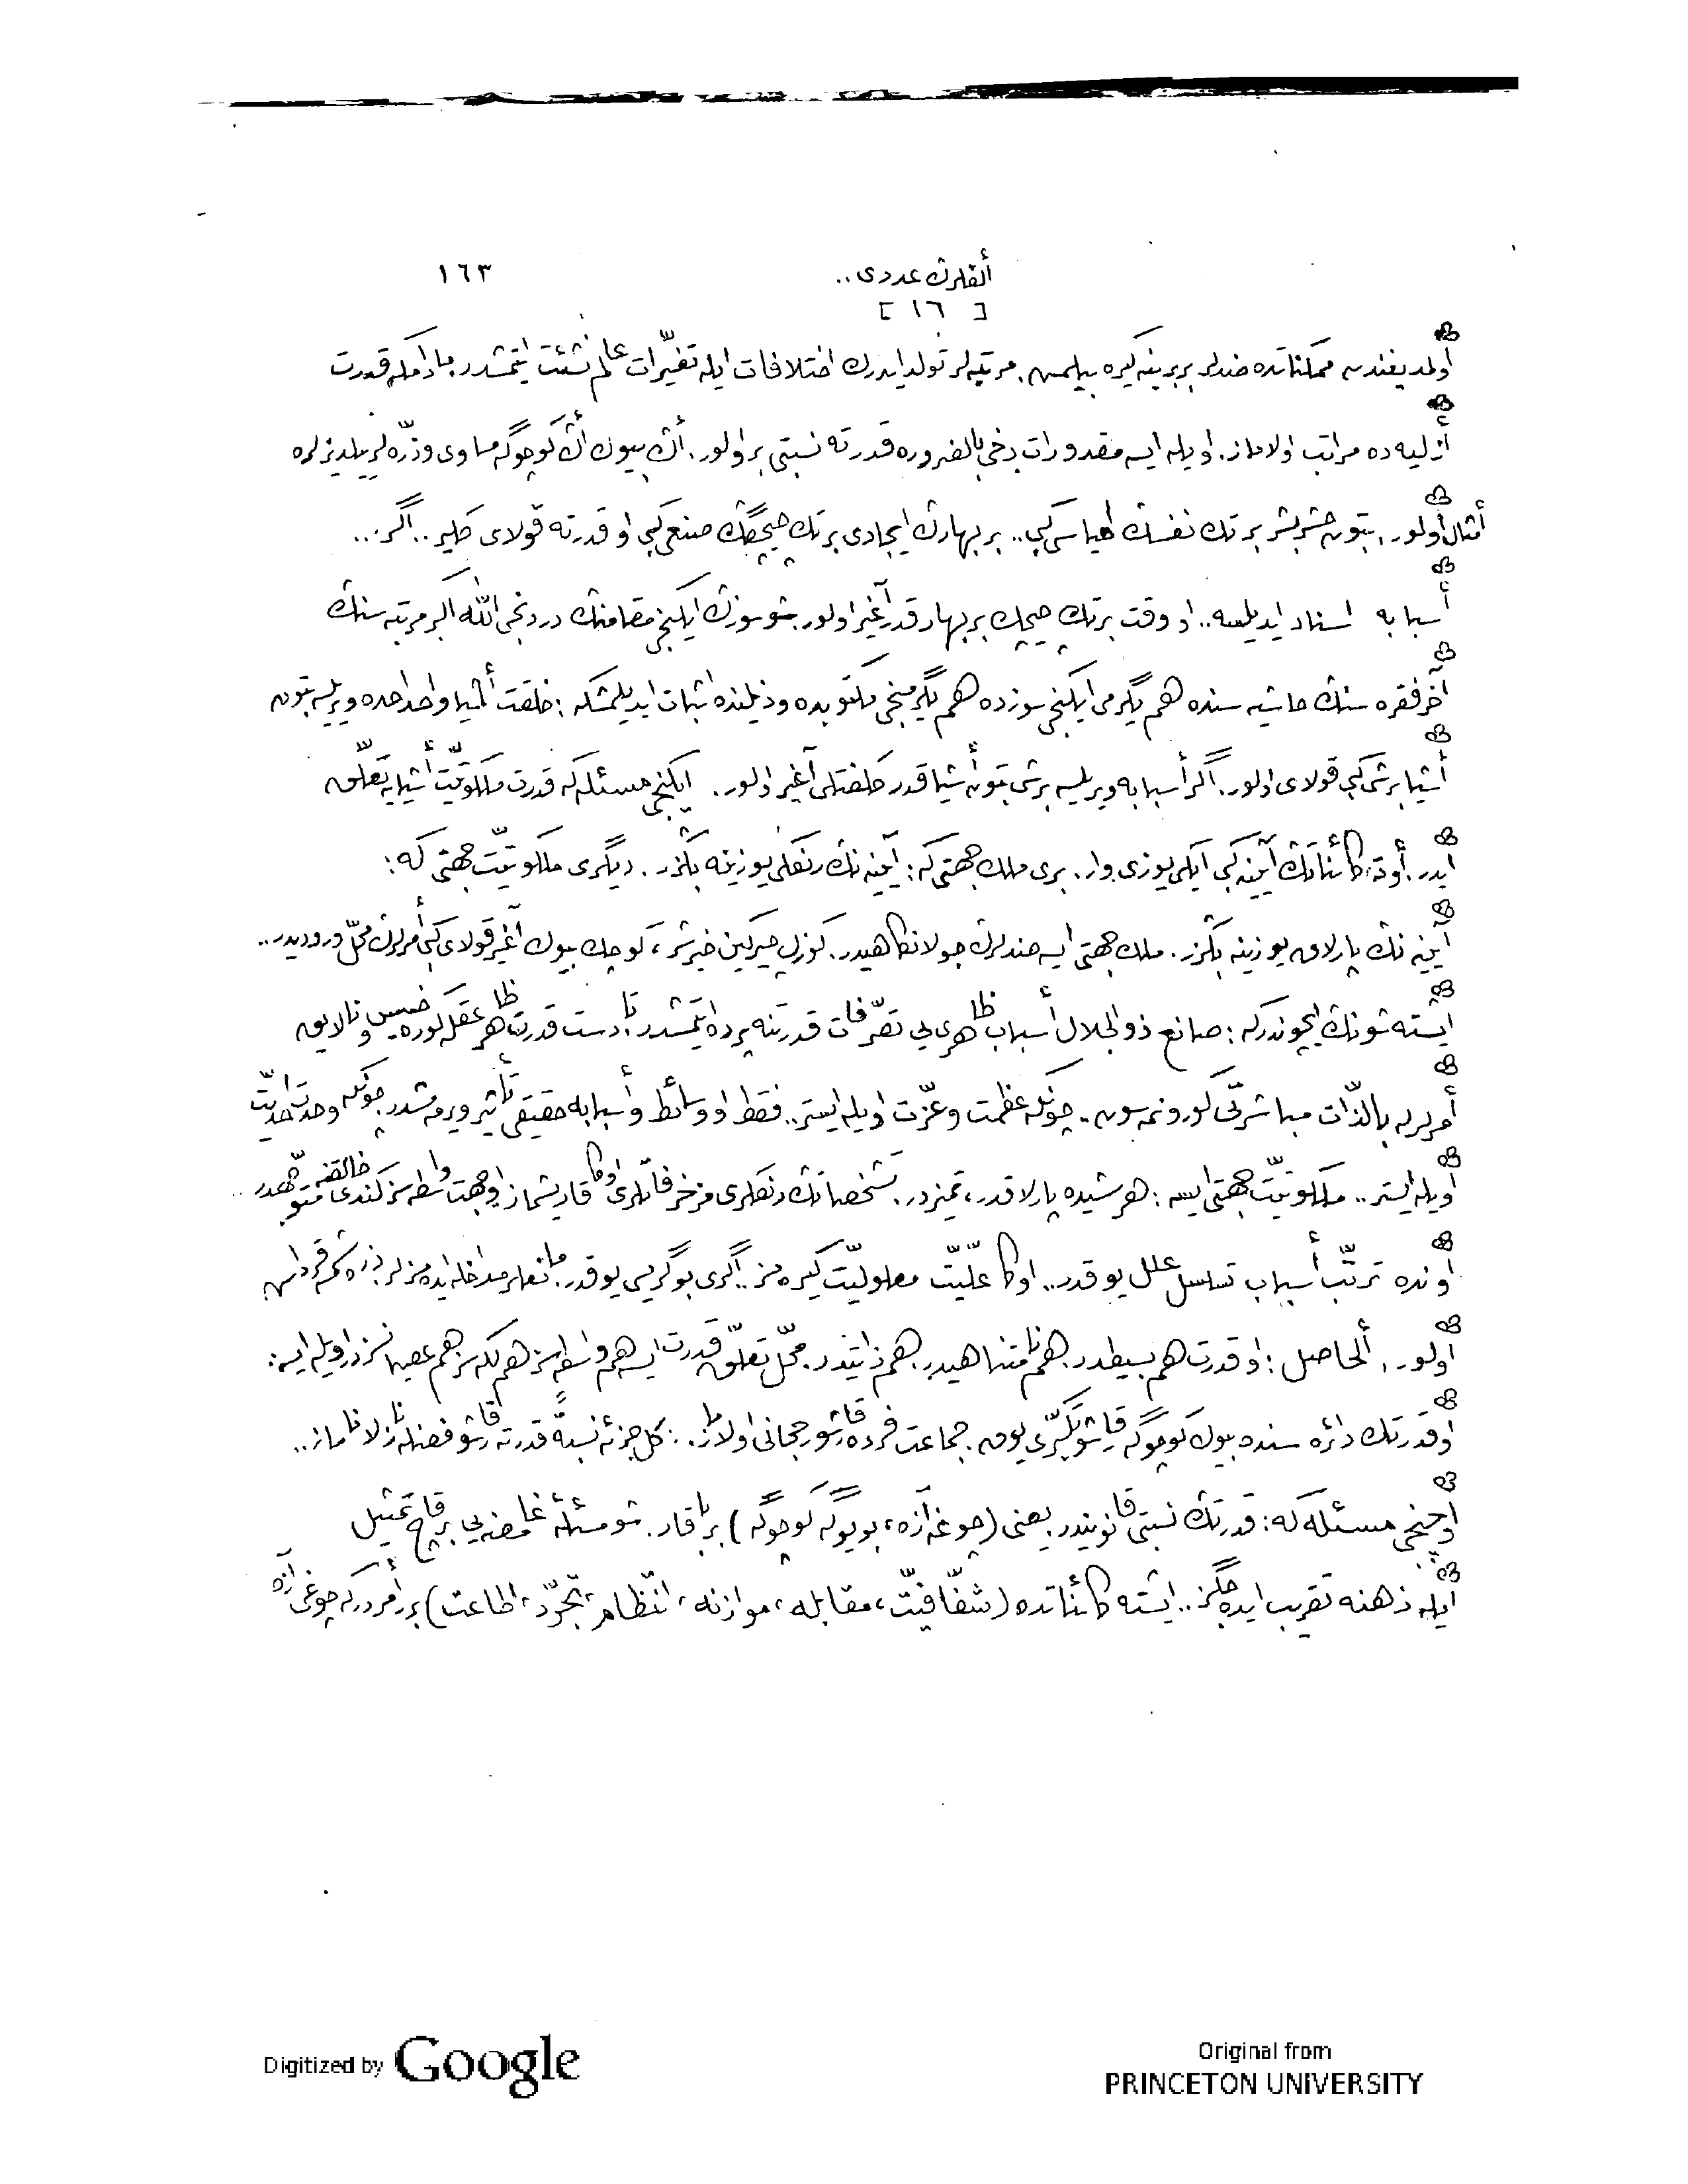 ألفلرڭ عددى..
١٦٣
[ ١٦ ]
اولديغندن ممكناتده ضدلر بربرينه كيره بيلمش. مرتبه‌لر تولد ايدرك اختلافات ايله تغيّرات عالم نشئت ايتمشدر. مادامكه قدرت
أزليه‌ده مراتب اولاماز. اويله ايسه مقدورات دخى بالضروره قدرته نسبتى بر اولور. أڭ بيوك أڭ كوچوگه مساوى وذرّه‌لر ييلديزلره
أمثال اولور. بتون حشر بشر برتك نفسڭ احياسى كبى.. بر بهارڭ ايجادى برتك چيچگڭ صنعى كبى او قدرته قولاى كلير.. اگر..
أسبابه اسناد ايديلسه.. او وقت برتك چيچك بر بهار قدر آغير اولور. شو سوزڭ ايكنجى مقامنڭ دردنجى الله اكبر مرتبه‌سنڭ
آخر فقره‌سنڭ حاشيه‌سنده هم يگرمى ايكنجى سوزده هم يگرمنجى مكتوبده وذيلنده اثبات ايديلمشكه: خلقت أشيا واحد احده ويريلسه بتون
أشيا برشى كبى قولاى اولور. اگر أسبابه ويريلسه برشى بتون أشيا قدر كلفتلى آغير اولور. ايكنجى مسئله كه قدرت ملكوتيّت أشيايه تعلّق
ايدر. أوت كائناتڭ آيينه كبى ايكى يوزى وار. برى ملك جهتى كه: آيينه‌نڭ رنكلى يوزينه بڭزر. ديگرى ملكوتيّت جهتى كه:
آيينه‌نڭ پارلاق يوزينه بڭزر. ملك جهتى ايسه ضدلرڭ جولانگاهيدر. كوزل چيركين خير شر، كوچك بيوك آغير قولاى كبى أمرلرڭ محلّ وروديدر..
ايشته شونڭ ايچوندركه: صانع ذوالجلال أسباب ظاهرى‌يى تصرّفات قدرتنه پرده ايتمشدر. تا دست قدرت ظاهر عقله كوره خسيس و نالايق
أمرلرله بالذّات مباشرتى كورونمه‌سون. چونكه عظمت وعزّت اويله ايستر.. فقط او وسائط وأسبابه حقيقى تأثير ويرمه‌مشدر. چونكه وحدت احديّت
اويله ايستر.. ملكوتيّت جهتى ايسه: هر شيده پارلاقدر، تميزدر. تشخصاتڭ رنكلرى مزخرفاتلرى اوكا قاريشماز. او جهت واسطه‌سز كندى خالقنه متوجّهدر..
اونده ترتّب أسباب تسلسل علل يوقدر.. اوكا علّيّت معلوليّت كيره‌مز.. اگرى بوگريسى يوقدر. مانعلر مداخله ايده‌مزلر. ذره شمسه قرداش
اولور. ألحاصل: او قدرت هم بسيطدر. هم نامتناهيدر. هم ذاتيدر. محلّ تعلّق قدرت ايسه هم واسطه‌سز هم لكه‌سز هم عصيانسزدر. اويله ايسه:
او قدرتك دائره‌سنده بيوك كوچوگه قارشو تكبّرى يوق. جماعت فرده قارشو رجحانى اولاماز. كل جزئه نسبةً قدرته قارشو فضله نازلاناماز..
اوچنجى مسئله كه: قدرتڭ نسبتى قانونيدر. يعنى (چوغه آزه، بويوگه كوچوگه) بر باقار. شو مسئلهٔ غامضه‌يى بر قاچ تمثيل
ايله ذهنه تقريب ايده‌جگز.. ايشته كائناتده (شفّافيّت، مقابله، موازنه، انتظام، تجرّد، اطاعت) برر أمردركه چوغى آزه
Digitized by Google
Original from
PRINCETON UNIVERSITY